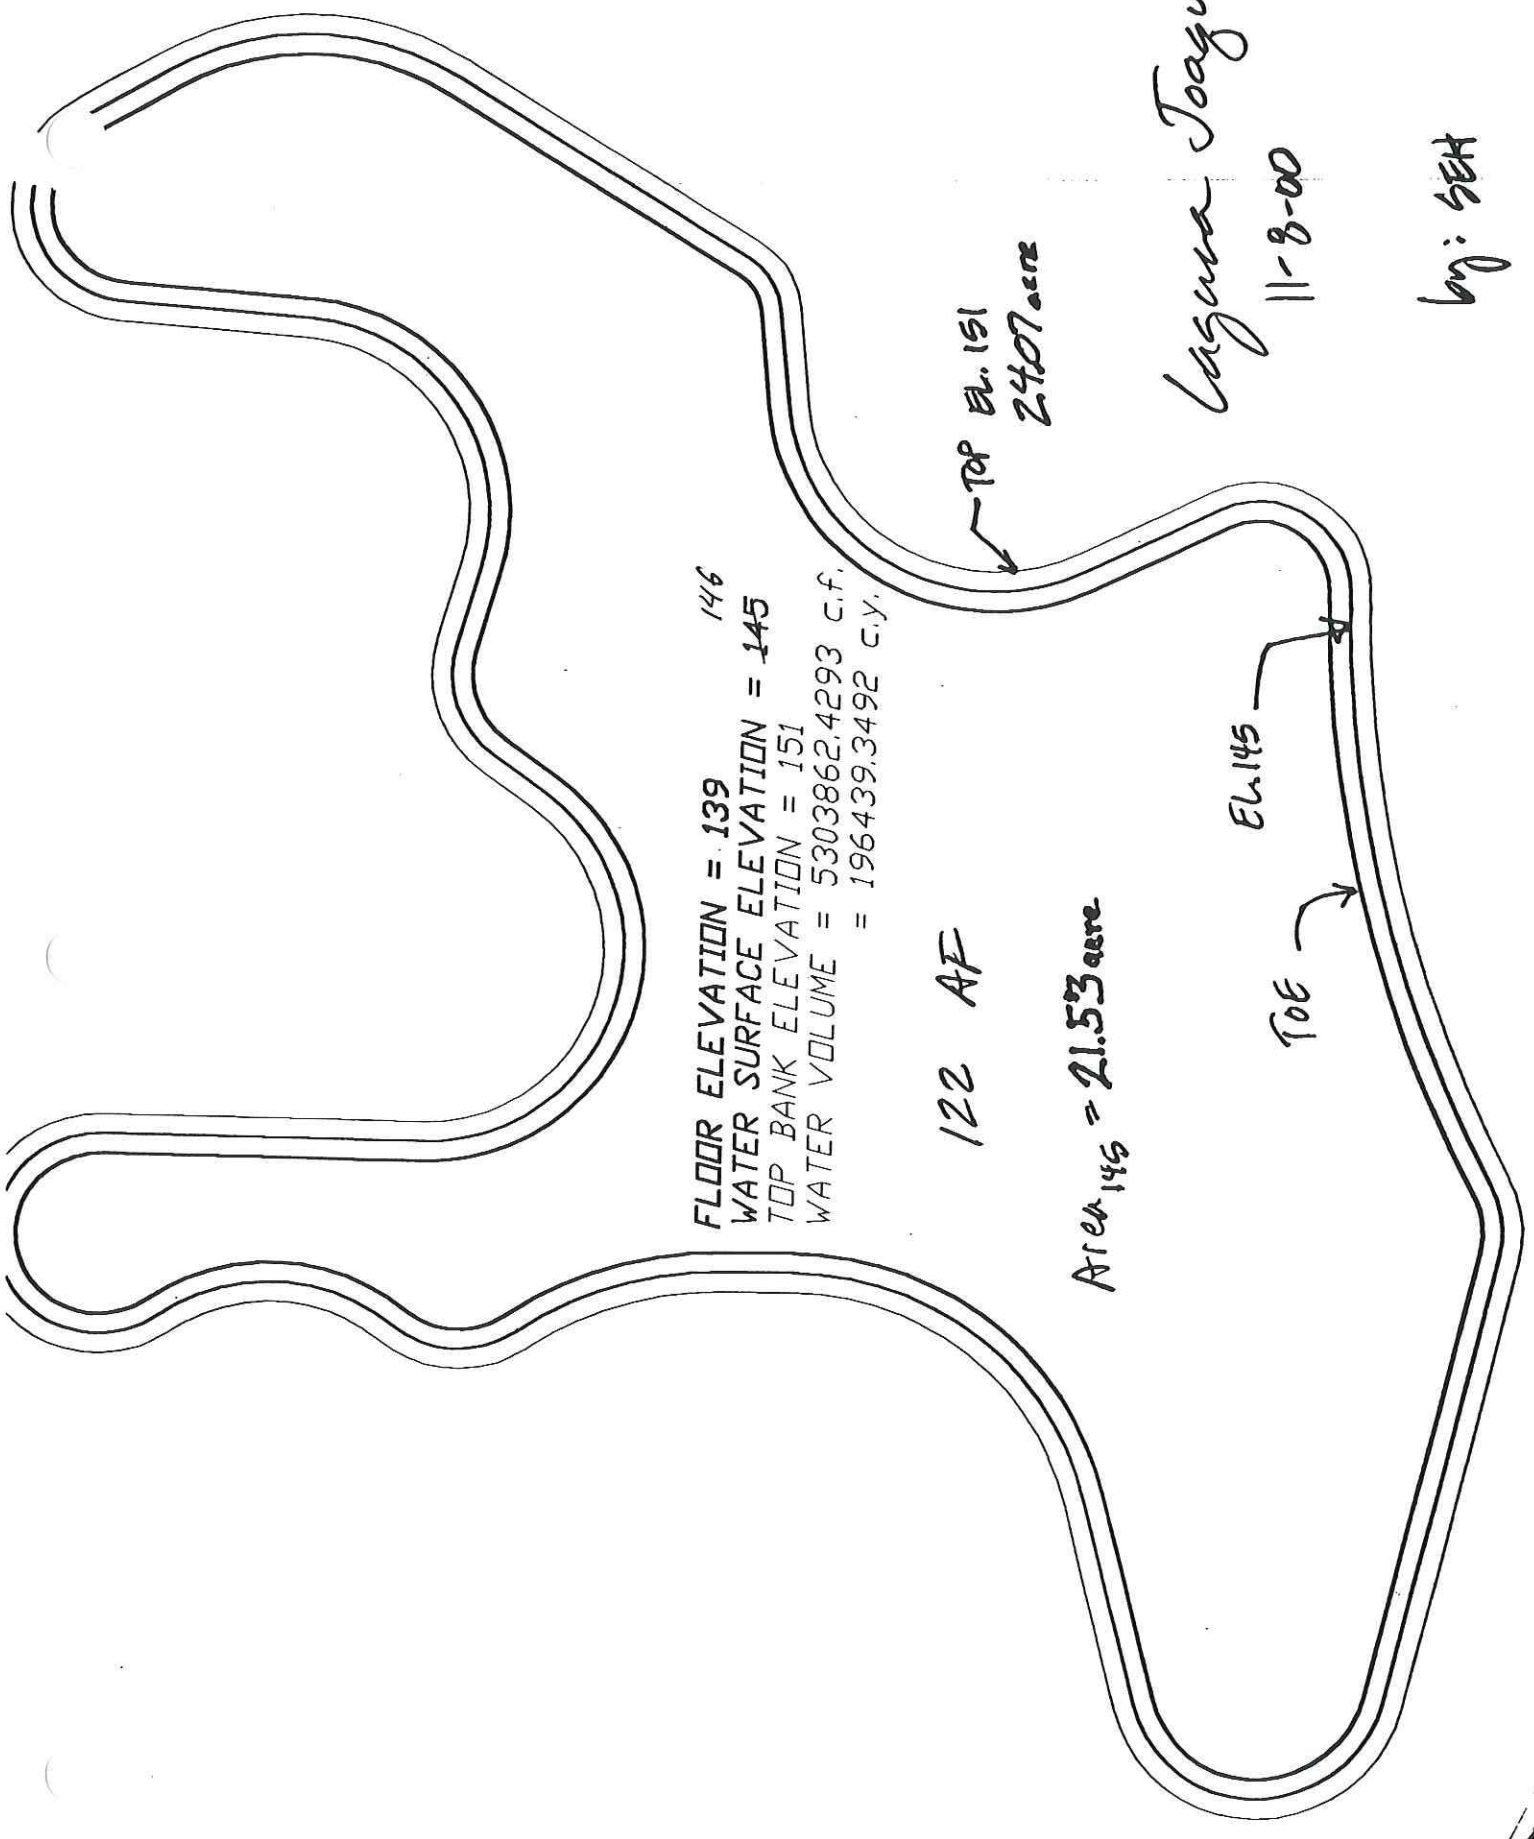 FLOOR ELEVATION = 139
146
WATER SURFACE ELEVATION = 145
TOP BANK ELEVATION = 151
WATER VOLUME = 5303862.4293 c.f.
= 196439.3492 c.y.
122 AF
Area 145 = 21.53 acre
TOP EL. 151
24.07 acre
EL. 145
TOE
Laguna Joaqu
11-8-00
by: SEH